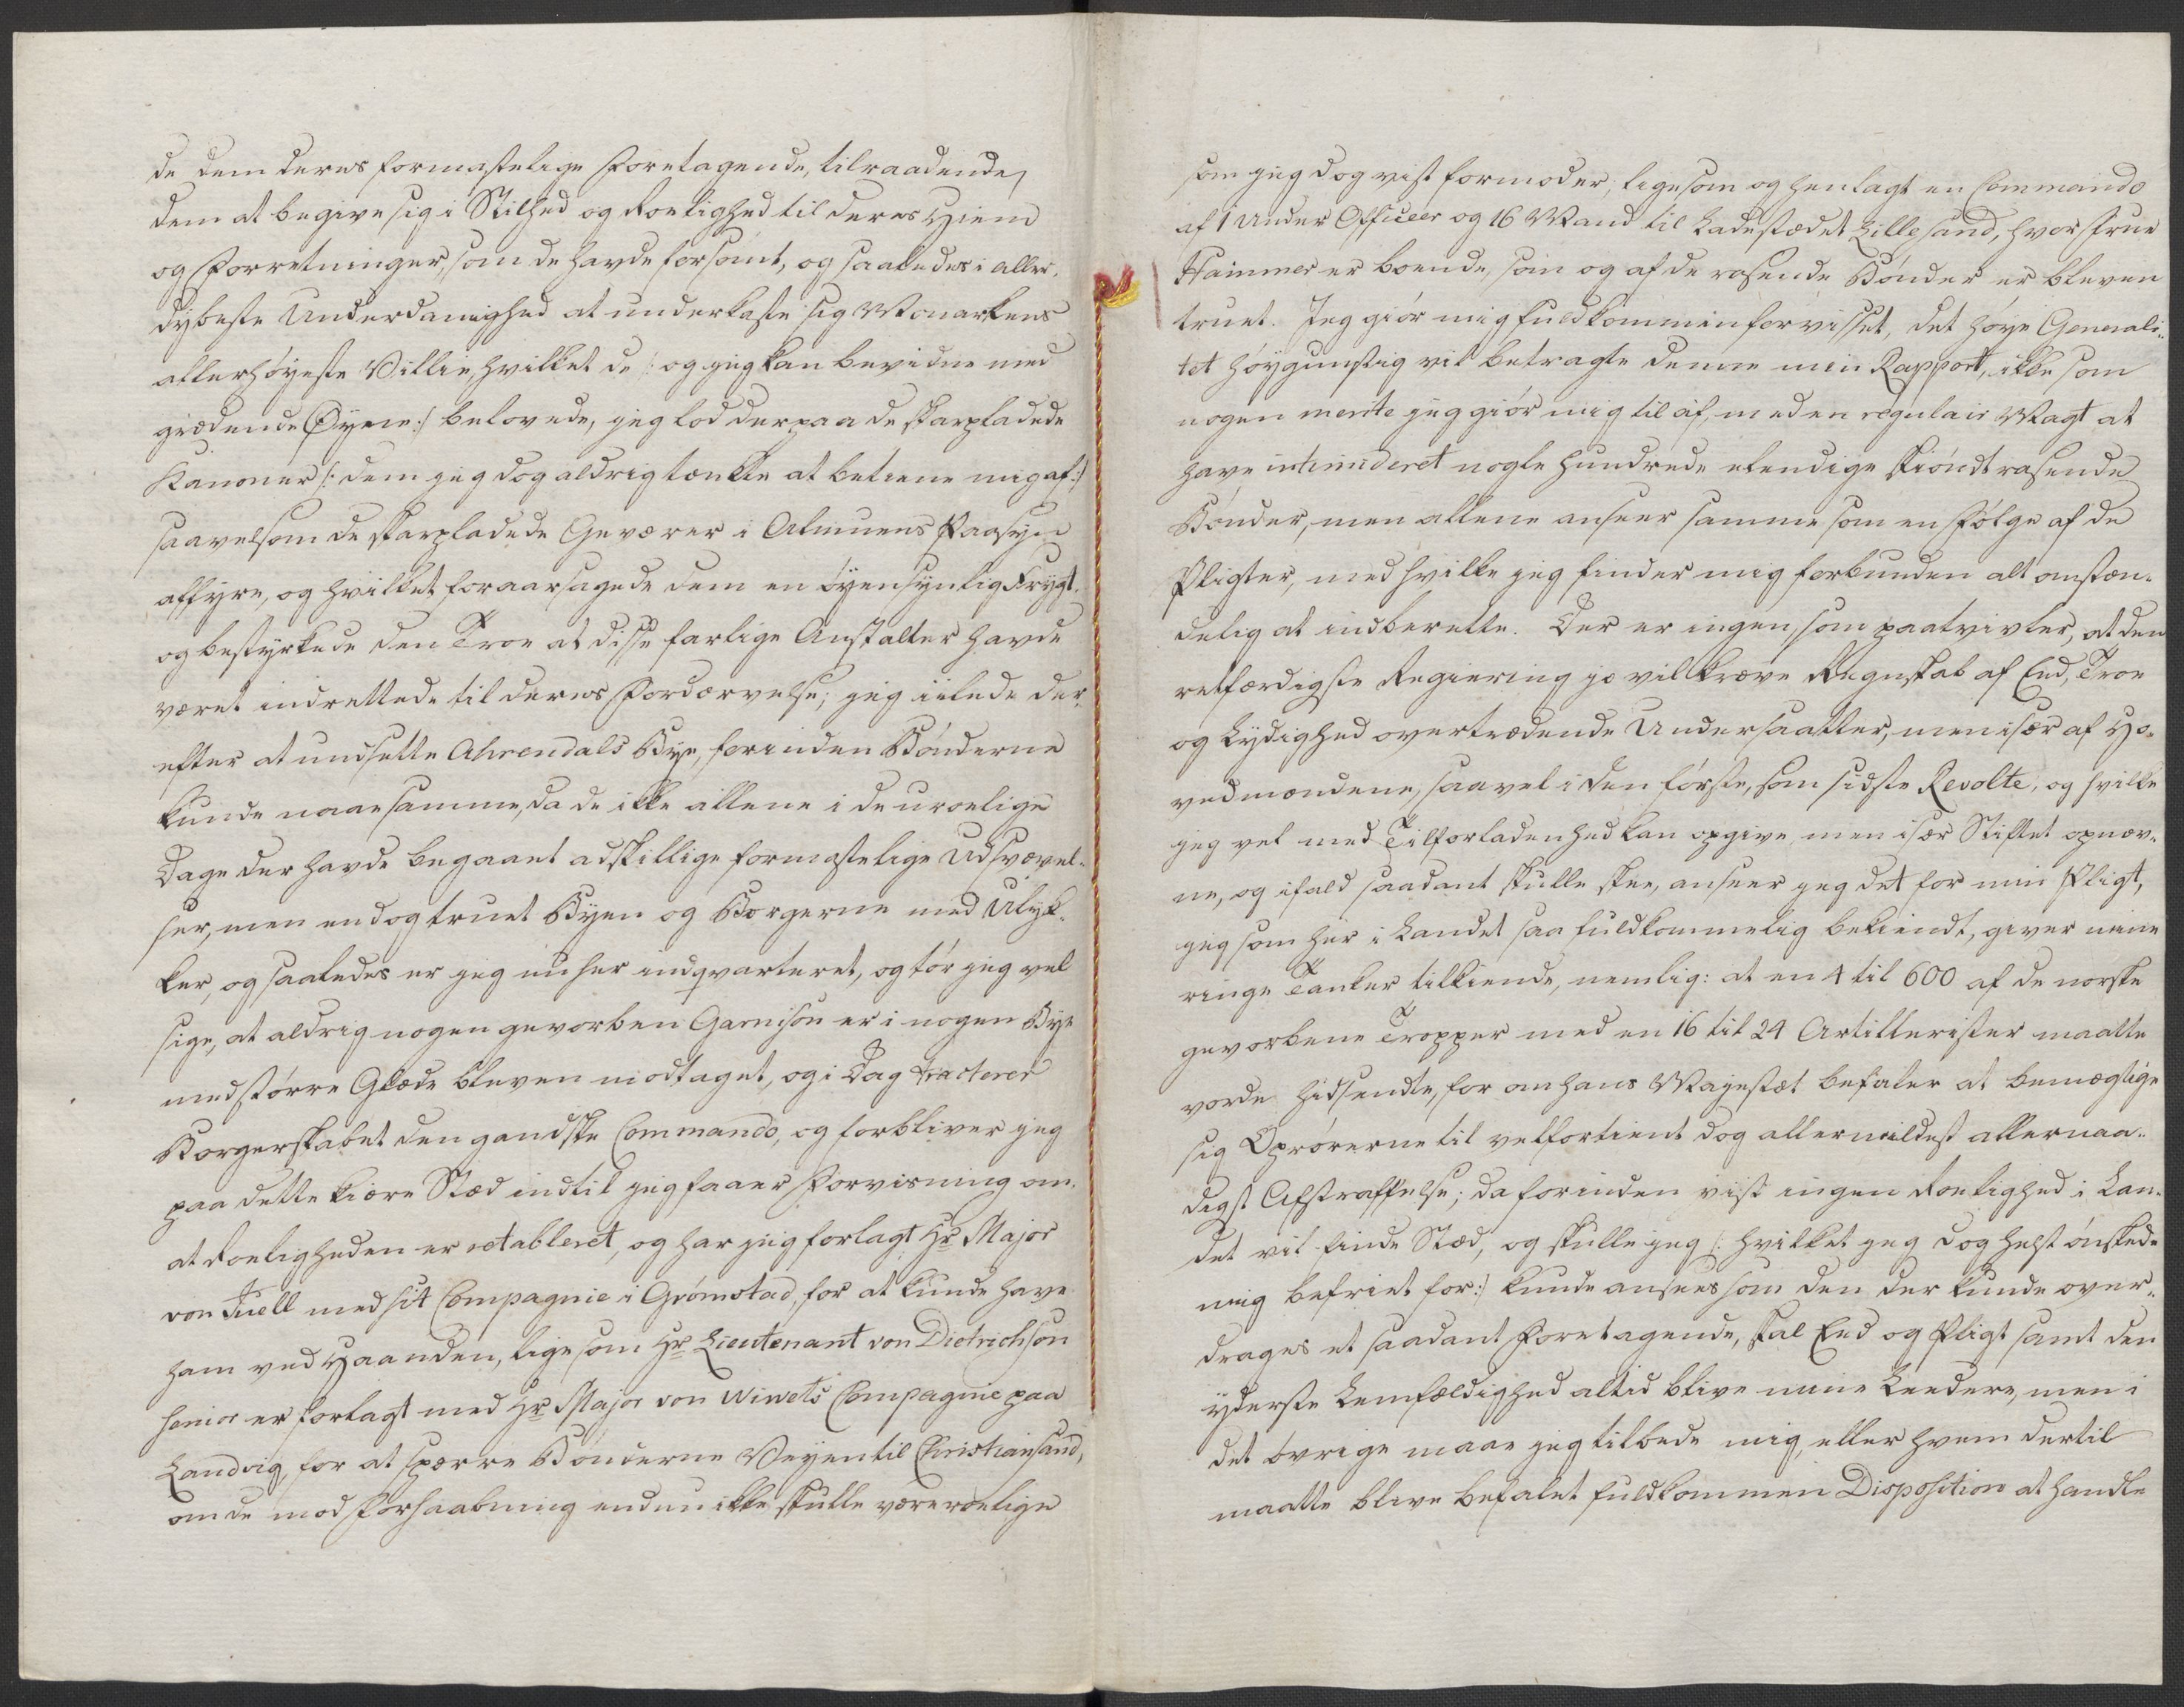 de dem deres formastelige Foretagende, tilraadende,
dem at begive sig i Stilhed og Roelighed til deres Hiem
og Forretninger, som de havde forsømt, og saaledes i aller-
dybeste Underdanighed at underkaste sig Monarkens
allerhøyeste Villie, hvilket de /: og jeg kan bevidne med
grædende Øyne :/ belovede, jeg lod derpaa de skarpladede
Kanoner /: dem jeg dog aldrig tænkte at betiene mig af :/
saavelsom de skarpladede Geværer i Almuens Paasyn
affyre, og hvilket foraarsagede dem en øyensynlig Frygt,
og bestyrkede den Troe at disse farlige Anstalter havde
været indrettede til deres Fordærvelse; jeg iilede der-
efter at undsætte Ahrendals Bye, forinden Bønderne
kunde naae samme, da de ikke allene i de uroelige
Dage der havde begaaet adskillige formastelige Udsvævel-
ser, men endog truet Byen og Borgerne med Ulyk-
ker, og saaledes er jeg nu her indqvarteret, og tør jeg vel
sige, at aldrig nogen gevorben Garnison er i nogen Bye
med større Glæde bleven modtaget, og i Dag tracterer
Borgerskabet den gandske Commando, og forbliver jeg
paa dette kiære Stæd indtil jeg faaer Forvisning om,
at Roeligheden er retableret, og har jeg forlagt Hr Major
von Fuell med sit Compagnie i Grømstad, for at kunde have
ham ved Haanden, ligesom Hr Lieutenant von Dietrichson
senior er forlagt med Hr Major von Wiwets Compagnie paa
Landvig, for at spærre Bønderne Veyen til Christiansand,
om de mod Forhaabning endnu ikke skulle være roelige
som jeg dog vist formoder; ligesom og henlagt en Commando
af 1 Under Officeer og 16 Mand til Ladestædet Lillesand, hvor Frue
Hammer er boende, som og af de rasende Bønder er bleven
truet. Jeg giør mig fuldkommen forvisset, det høye Generali-
tet høygunstig vil betragte denne min Rapport, ikke som
nogen merite jeg giør mig til af, med en regulair Magt at
have intimideret nogle hundrede elendige skiøndt rasende
Bønder, men allene anseer samme som en Følge af de
Pligter, med hvilke jeg finder mig forbunden alt omstæn-
delig at indberette. Der er ingen, som paatvivler, at den
retfærdigste Regiering jo vil kræve Regnskab af Eed, Troe
og Lydighed overtrædende Undersaatter, men især af Ho-
vedmændene, saavel i den første, som sidste Revolte, og hvilke
jeg vel med Tilforladenhed kan opgive, men især Stiftet opnæv-
ne, og ifald saadant skulle skee, anseer jeg det for min Pligt,
jeg som her i Landet saa fuldkommelig bekiendt, giver mine
ringe Tanker tilkiende, nemlig: at en 4 til 600 af de norske
gevorbene Tropper med en 16 til 24 Artillerister maatte
vorde hidsendte, for om hans Majestæt befaler at bemægtige
sig Oprørerne til velfortient dog allermildest allernaa-
digst Afstraffelse; da forinden vist ingen Roelighed i Lan-
det vil finde Stæd, og skulle jeg /: hvilket jeg dog helst ønskede
mig befriet for :/ kunde ansees som den der kunde over-
drages et saadant Foretagende, skal Eed og Pligt samt den
yderste Lemfældighed altid blive mine Leedere, men i
det øvrige maae jeg tilbede mig, eller hvem dertil
maatte blive befalet fuldkommen Disposition at handle